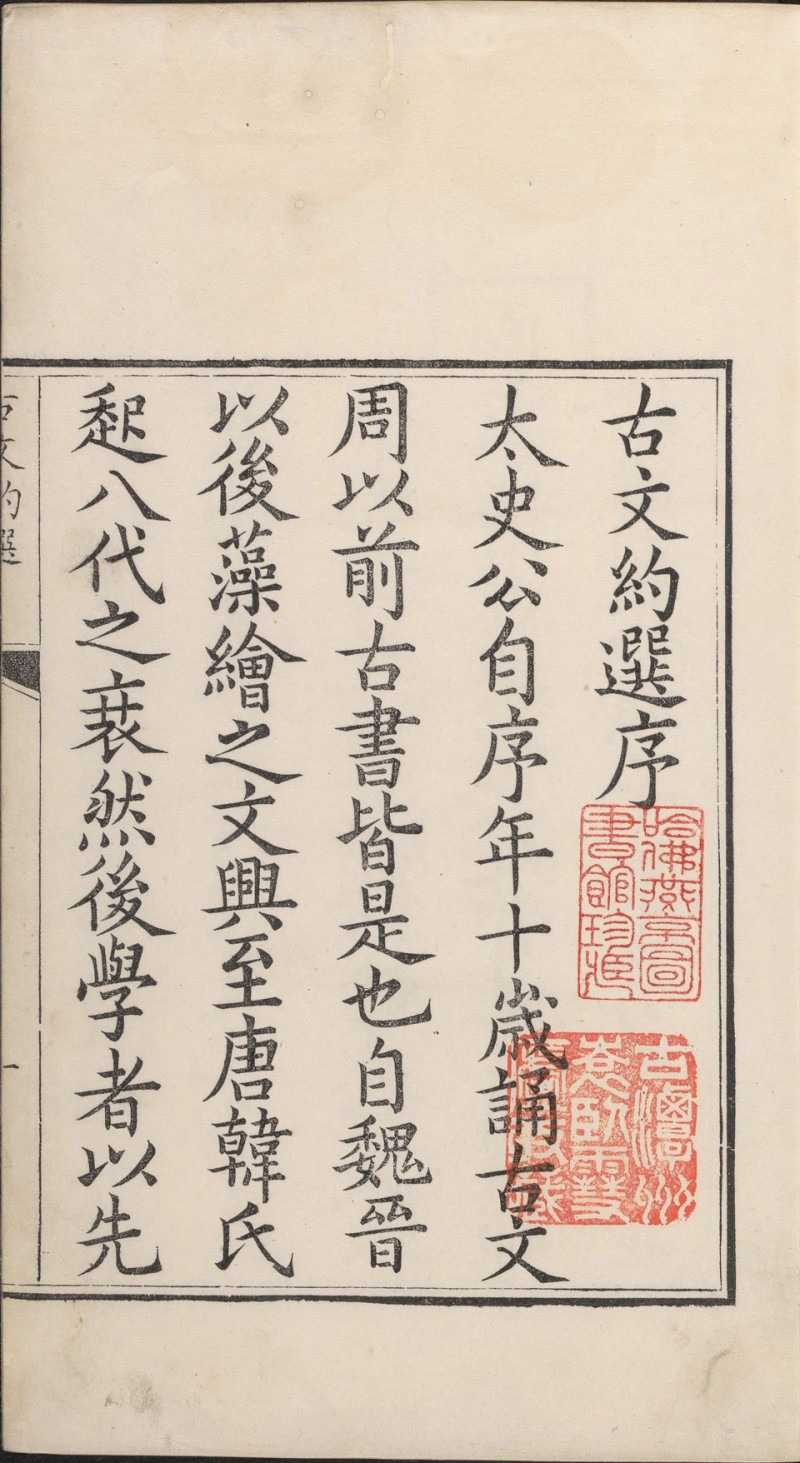 古文約選序
太史公自序年十歲誦古文
周以前古書皆是也自魏晉
以後藻繪之文興至唐韓氏
起八代之衰然後學者以先
古文約選
一
哈佛燕京圖
書館珍藏
古潭州
袁臥雪
廬收藏